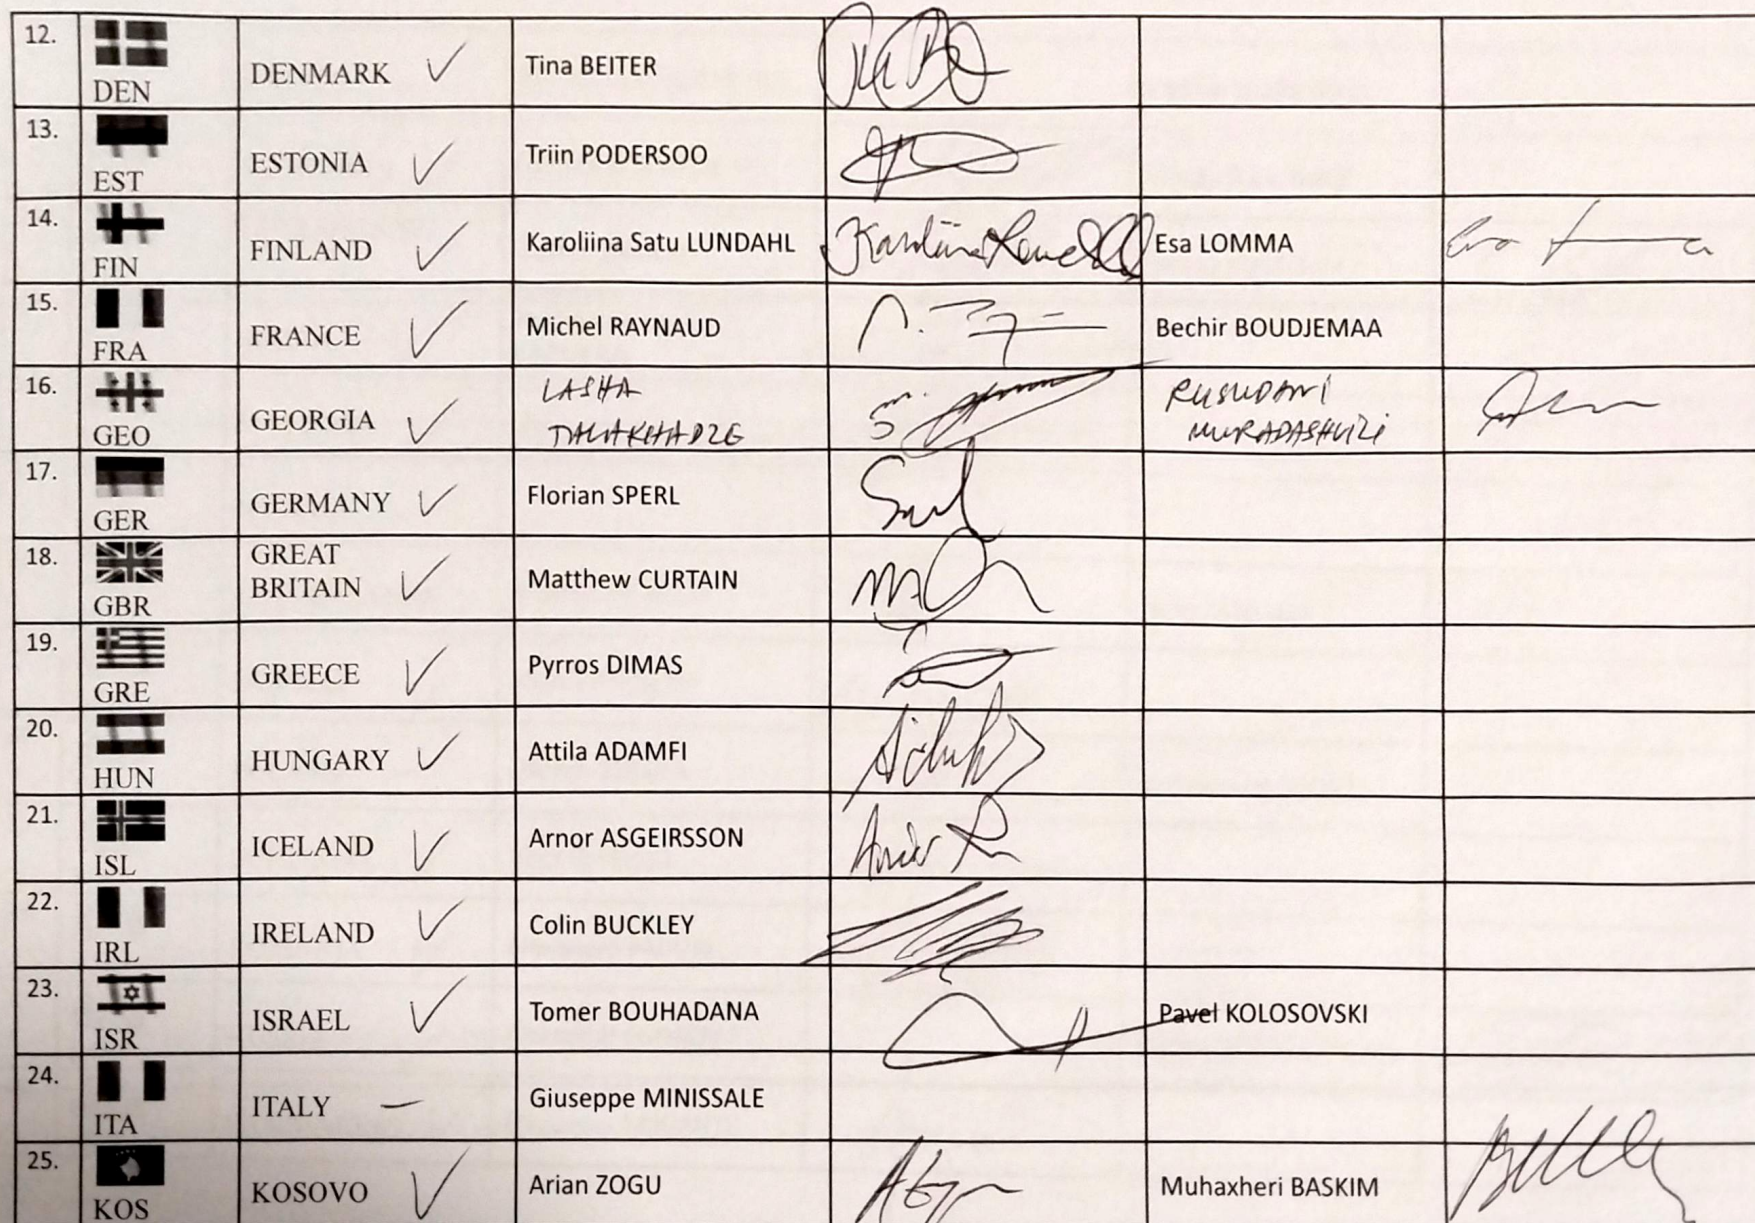 12. DEN DENMARK ✓ Tina BEITER
13. EST ESTONIA ✓ Triin PODERSOO
14. FIN FINLAND ✓ Karoliina Satu LUNDAHL Esa LOMMA
15. FRA FRANCE ✓ Michel RAYNAUD Bechir BOUDJEMAA
16. GEO GEORGIA ✓ LASHA RUSUDANI
TALAKHADZE MURADASHVILI
17. GER GERMANY ✓ Florian SPERL
18. GBR GREAT
BRITAIN ✓ Matthew CURTAIN
19. GRE GREECE ✓ Pyrros DIMAS
20. HUN HUNGARY ✓ Attila ADAMFI
21. ISL ICELAND ✓ Arnor ASGEIRSSON
22. IRL IRELAND ✓ Colin BUCKLEY
23. ISR ISRAEL ✓ Tomer BOUHADANA Pavel KOLOSOVSKI
24. ITA ITALY – Giuseppe MINISSALE
25. KOS KOSOVO ✓ Arian ZOGU Muhaxheri BASKIM